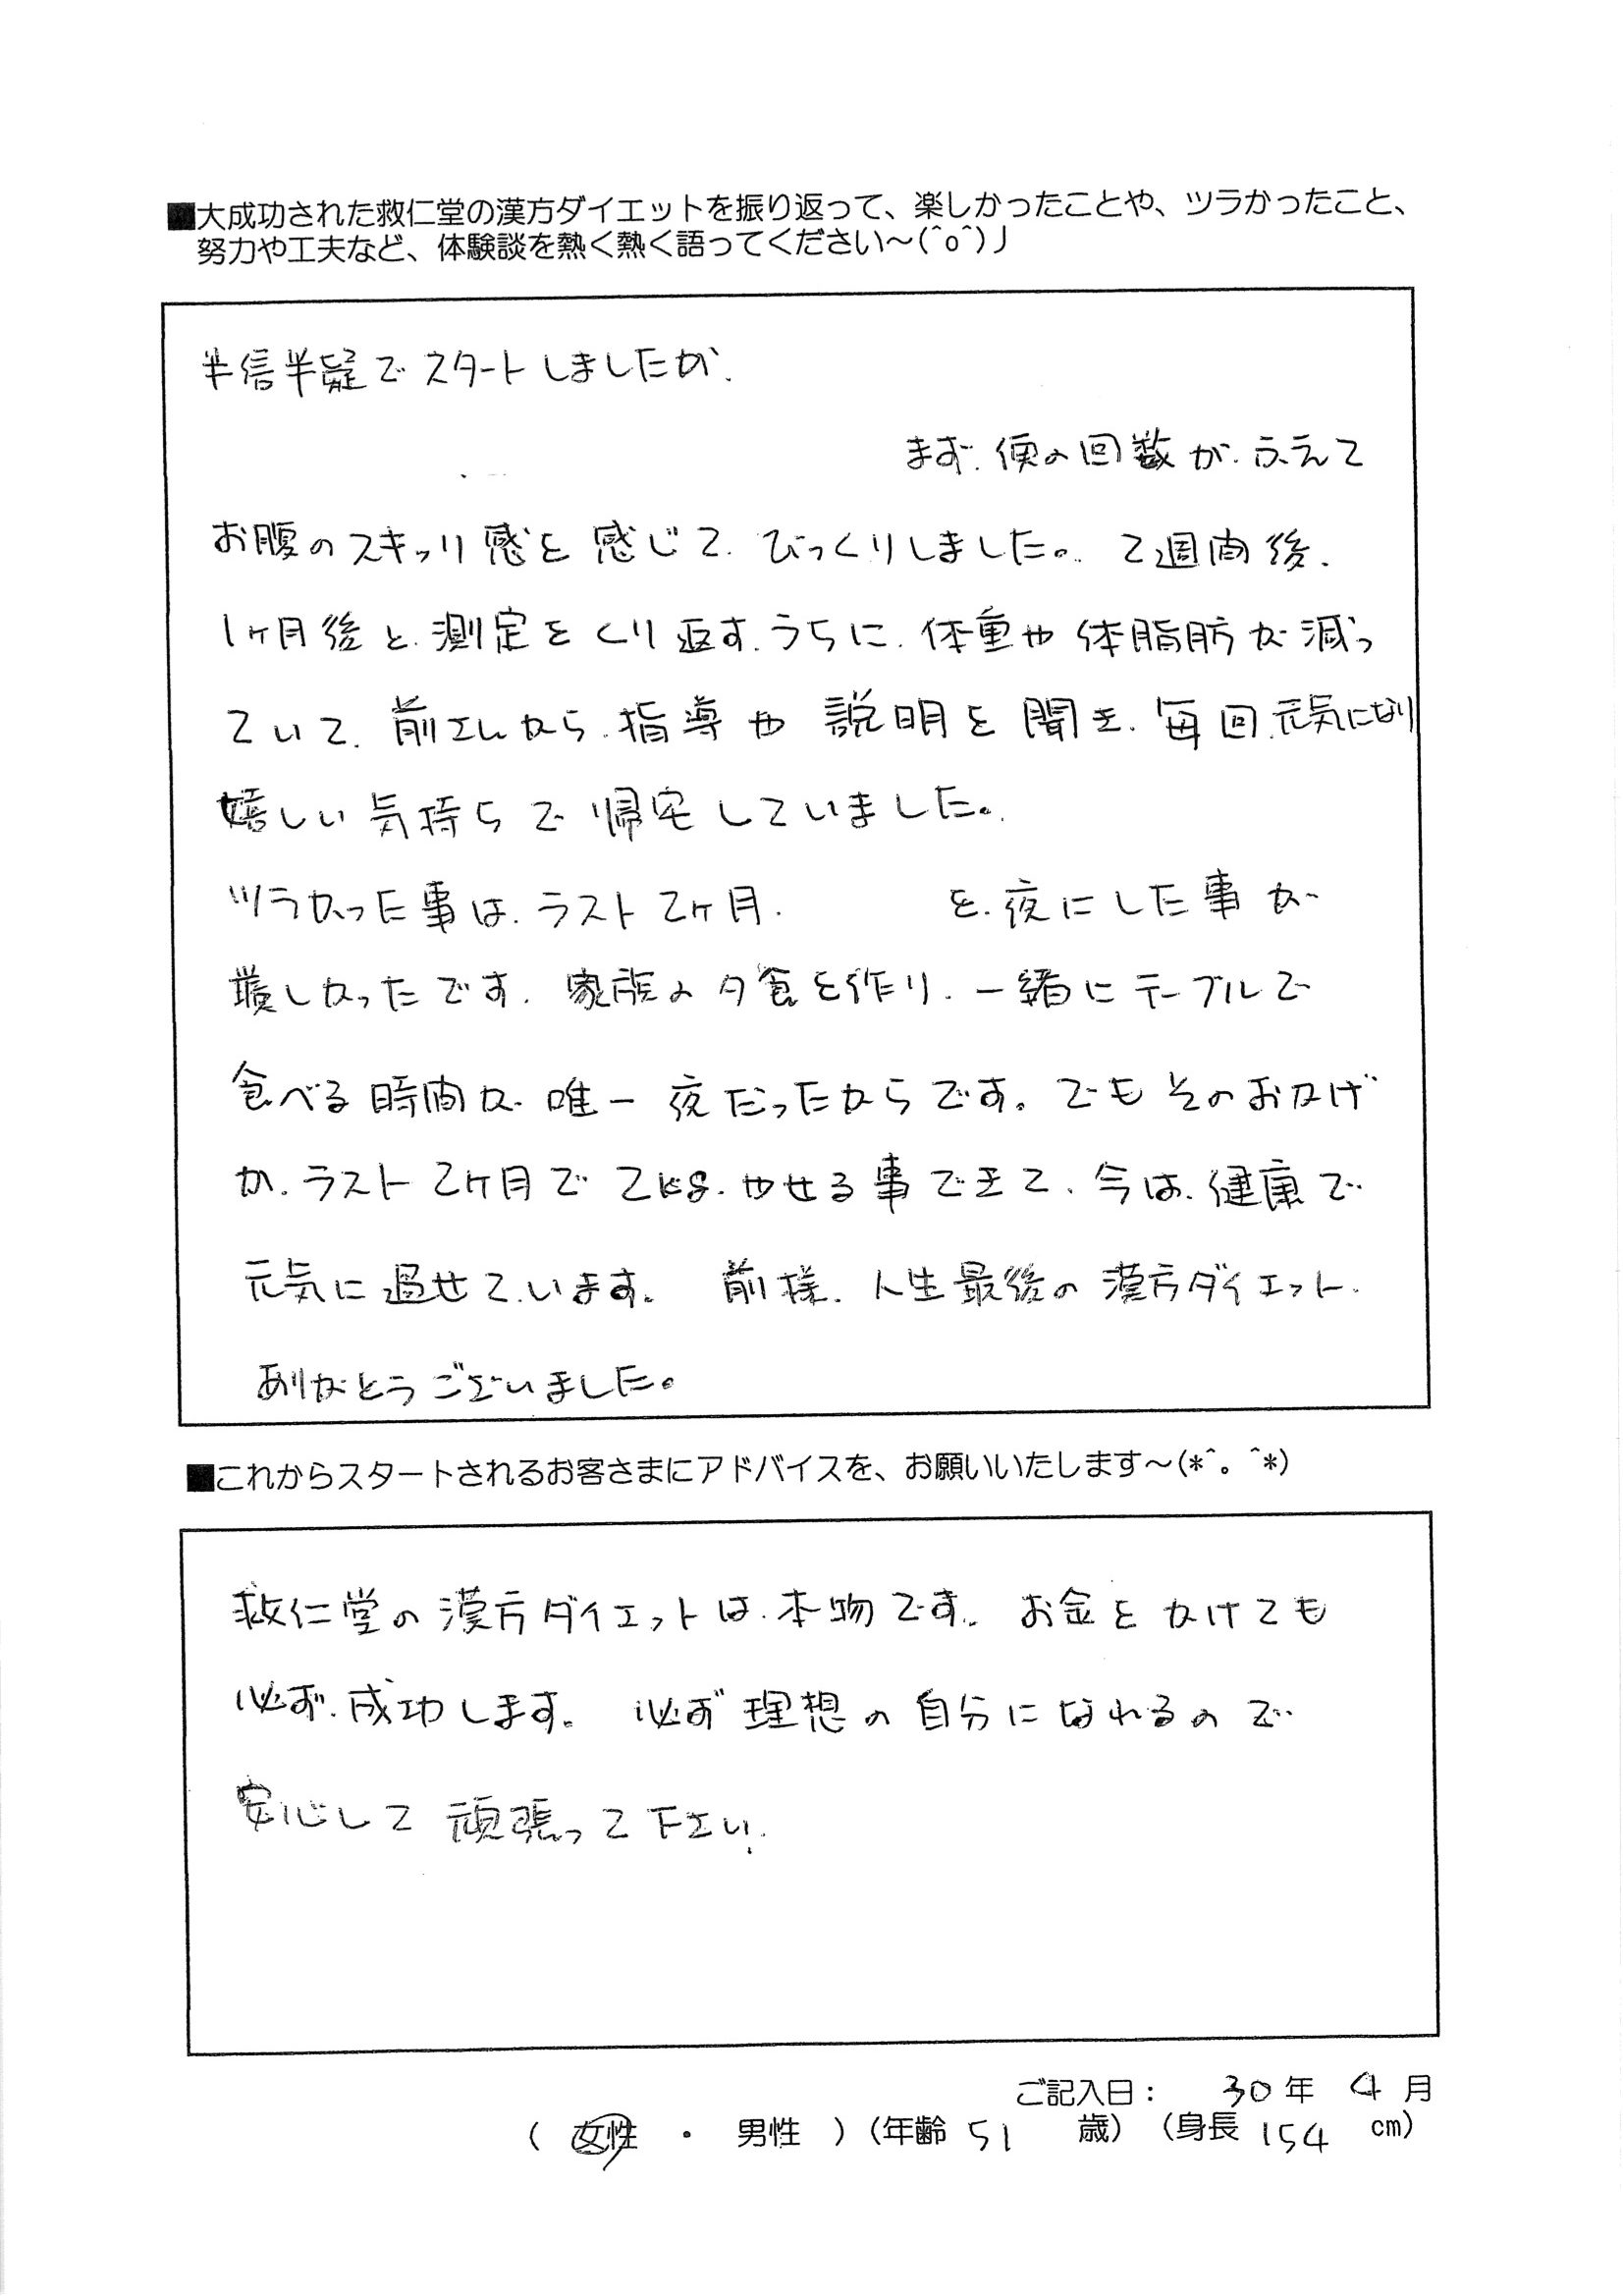 ■大成功された救仁堂の漢方ダイエットを振り返って、楽しかったことや、ツラかったこと、
努力や工夫など、体験談を熱く熱く語ってください～(^o^)丿
半信半疑でスタートしましたが、
まず、便の回数が、ふえて
お腹のスキッリ感を感じて、びっくりしました。2週間後、
1ヶ月後と、測定をくり返す、うちに、体重や体脂肪が減っ
ていて、前さんから、指導や説明を聞き、毎回、元気になり
嬉しい気持ちで帰宅していました。
ツラかった事は、ラスト2ヶ月、 を、夜にした事が
淋しかったです、家族の夕食を作り、一緒にテーブルで
食べる時間が唯一夜だったからです。でもそのおかげ
か、ラスト2ヶ月で2kg、やせる事できて、今は、健康で
元気に過せて、います。 前様、人生最後の漢方ダイエット、
ありがとうございました。
■これからスタートされるお客さまにアドバイスを、お願いいたします～(*^。^*)
救仁堂の漢方ダイエットは、本物です。お金をかけても
必ず、成功します。必ず理想の自分になれるので
安心して頑張って下さい、
ご記入日： 30年 4月
( 女性 ・ 男性 ) (年齢 51 歳) (身長 154 cm)